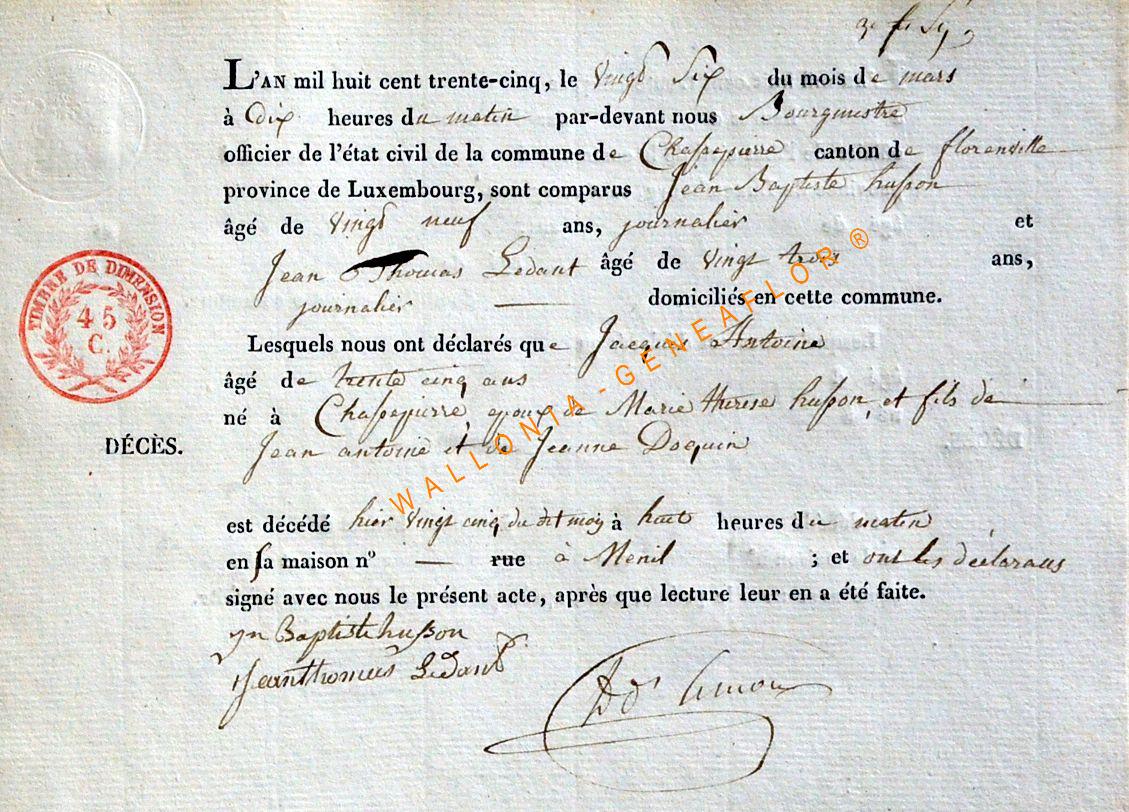 L'AN mil huit cent trente-cinq, le vingt six du mois de mars
à dix heures du matin par-devant nous Bourgmestre
officier de l'état civil de la commune de Chassepierre canton de florenville
province de Luxembourg, sont comparus Jean Baptiste husson
âgé de vingt neuf ans, journalier et
Jean Thomas Ledant âgé de vingt trois ans,
journalier domiciliés en cette commune.
Lesquels nous ont déclarés que Jacques Antoine
âgé de trente cinq ans
né à Chassepierre epoux de Marie therese husson, et fils de
Jean antoine et de Jeanne Doquin
DÉCÈS.
est décédé hier vingt cinq du dit moy à huit heures du matin
en sa maison nº — rue à Menil ; et ont les déclarans
signé avec nous le présent acte, après que lecture leur en a été faite.
jn Baptiste husson
jean thomas Ledant
TIMBRE DE DIMENSION
45
C.
WALLONIA-GENEAFLOR®